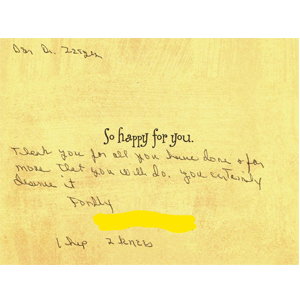 Dear Dr.
So happy for you.
Thank you for all you have done & for
more that you will do. you certainly
deserve it
Fondly
1 hip 2 knees